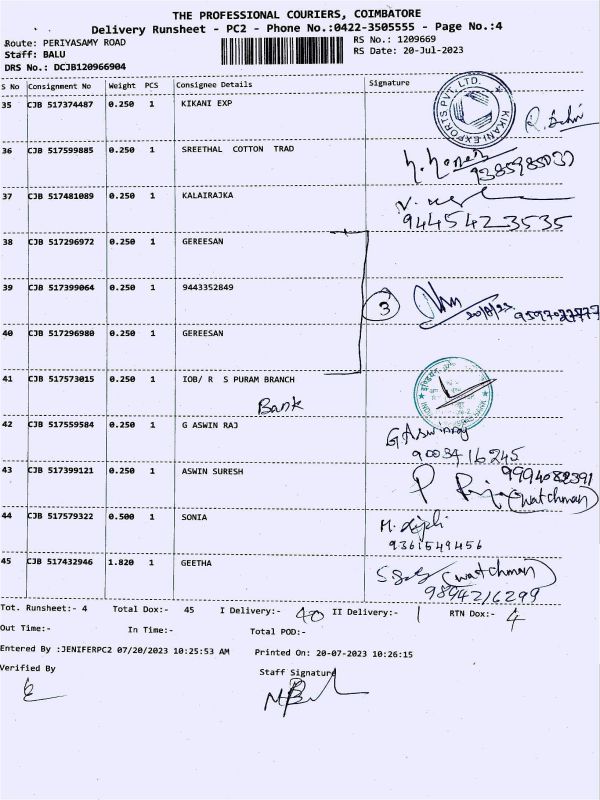 THE PROFESSIONAL COURIERS, COIMBATORE
Delivery Runsheet - PC2 - Phone No.:0422-3505555 - Page No.:4
Route: PERIYASAMY ROAD RS No.: 1209669
Staff: BALU RS Date: 20-Jul-2023
DRS No.: DCJB120966904
S No Consignment No Weight PCS Consignee Details Signature
35 CJB 517374487 0.250 1 KIKANI EXP
KIKANI EXPORTS PVT. LTD.
36 CJB 517599885 0.250 1 SREETHAL COTTON TRAD
9385985037
37 CJB 517481089 0.250 1 KALAIRAJKA
9445423535
38 CJB 517296972 0.250 1 GEREESAN
39 CJB 517399064 0.250 1 9443352849 3
9597027777
40 CJB 517296980 0.250 1 GEREESAN
41 CJB 517573015 0.250 1 IOB/ R S PURAM BRANCH
Bank
42 CJB 517559584 0.250 1 G ASWIN RAJ G Aswinraj
9003416245
43 CJB 517399121 0.250 1 ASWIN SURESH 9994082391
(watchman)
44 CJB 517579322 0.500 1 SONIA
9361549456
45 CJB 517432946 1.820 1 GEETHA (watchman)
9894216299
Tot. Runsheet:- 4 Total Dox:- 45 I Delivery:- 40 II Delivery:- 1 RTN Dox:- 4
Out Time:- In Time:- Total POD:-
Entered By :JENIFERPC2 07/20/2023 10:25:53 AM Printed On: 20-07-2023 10:26:15
Verified By Staff Signature